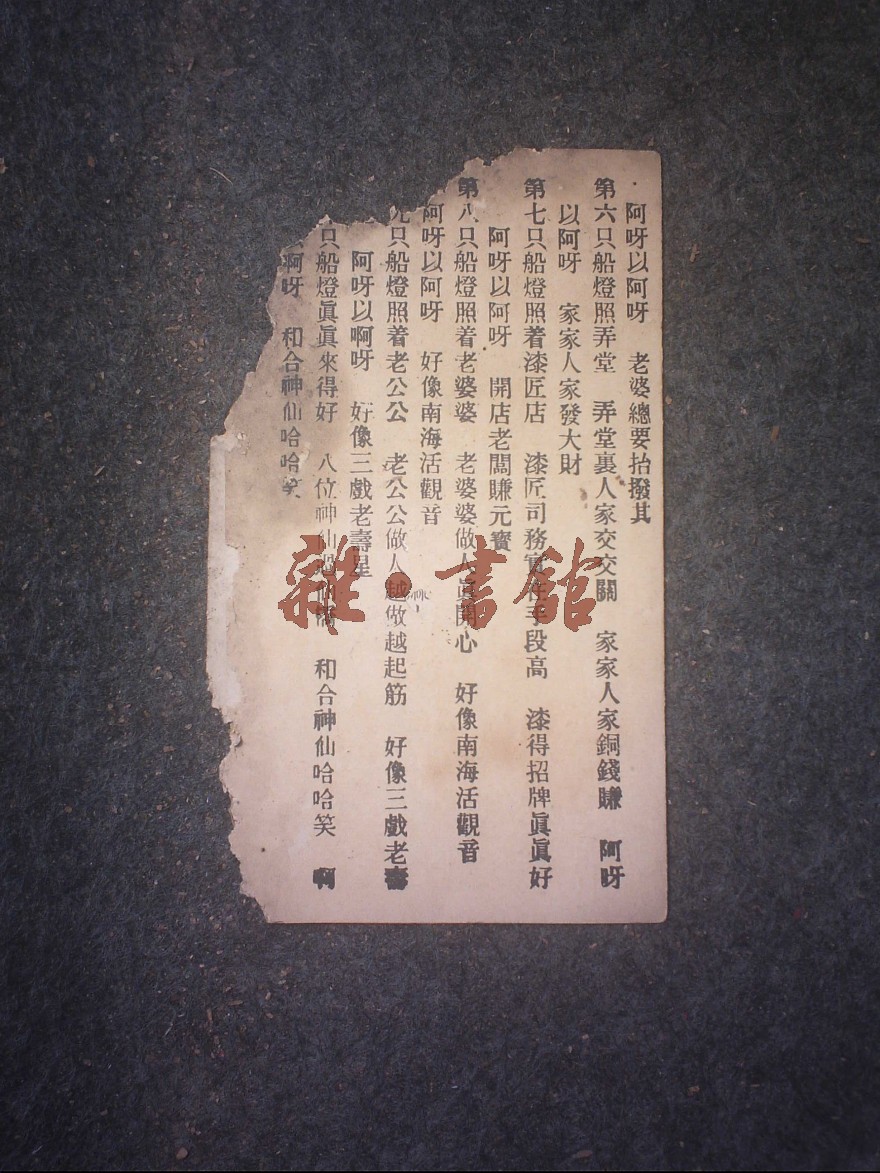 阿呀以阿呀　老婆總要抬撥其
第六只船燈照弄堂　弄堂裏人家交交關　家家人家銅錢賺　阿呀
以阿呀　家家人家發大財
第七只船燈照着漆匠店　漆匠司務手段高　漆得招牌眞眞好
阿呀以阿呀　開店老闆賺元寳
第八只船燈照着老婆婆　老婆婆做人眞開心　好像南海活觀音
阿呀以阿呀　好像南海活觀音
九只船燈照着老公公　老公公做人越做越起筋　好像三戲老壽
阿呀以啊呀　好像三戲老壽星
只船燈眞眞來得好　八位神仙　和合神仙哈哈笑　啊
啊呀　和合神仙哈哈笑
雜·書館